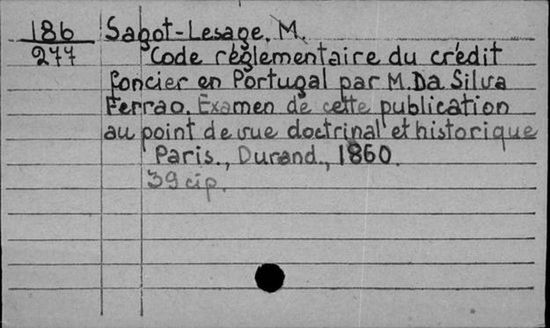 186 Sagot-Lesage, M.
277 Code réglementaire du crédit
foncier en Portugal par M. Da Silva
Ferrao. Examen de cette publication
au point de vue doctrinal et historique
Paris., Durand., 1860.
39 cip.